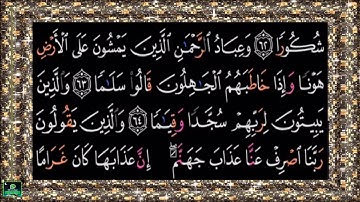 شُكُورًا ٦٢ وَعِبَادُ ٱلرَّحْمَٰنِ ٱلَّذِينَ يَمْشُونَ عَلَى ٱلْأَرْضِ
هَوْنًا وَإِذَا خَاطَبَهُمُ ٱلْجَٰهِلُونَ قَالُوا۟ سَلَٰمًا ٦٣ وَٱلَّذِينَ
يَبِيتُونَ لِرَبِّهِمْ سُجَّدًا وَقِيَٰمًا ٦٤ وَٱلَّذِينَ يَقُولُونَ
رَبَّنَا ٱصْرِفْ عَنَّا عَذَابَ جَهَنَّمَ ۖ إِنَّ عَذَابَهَا كَانَ غَرَامًا